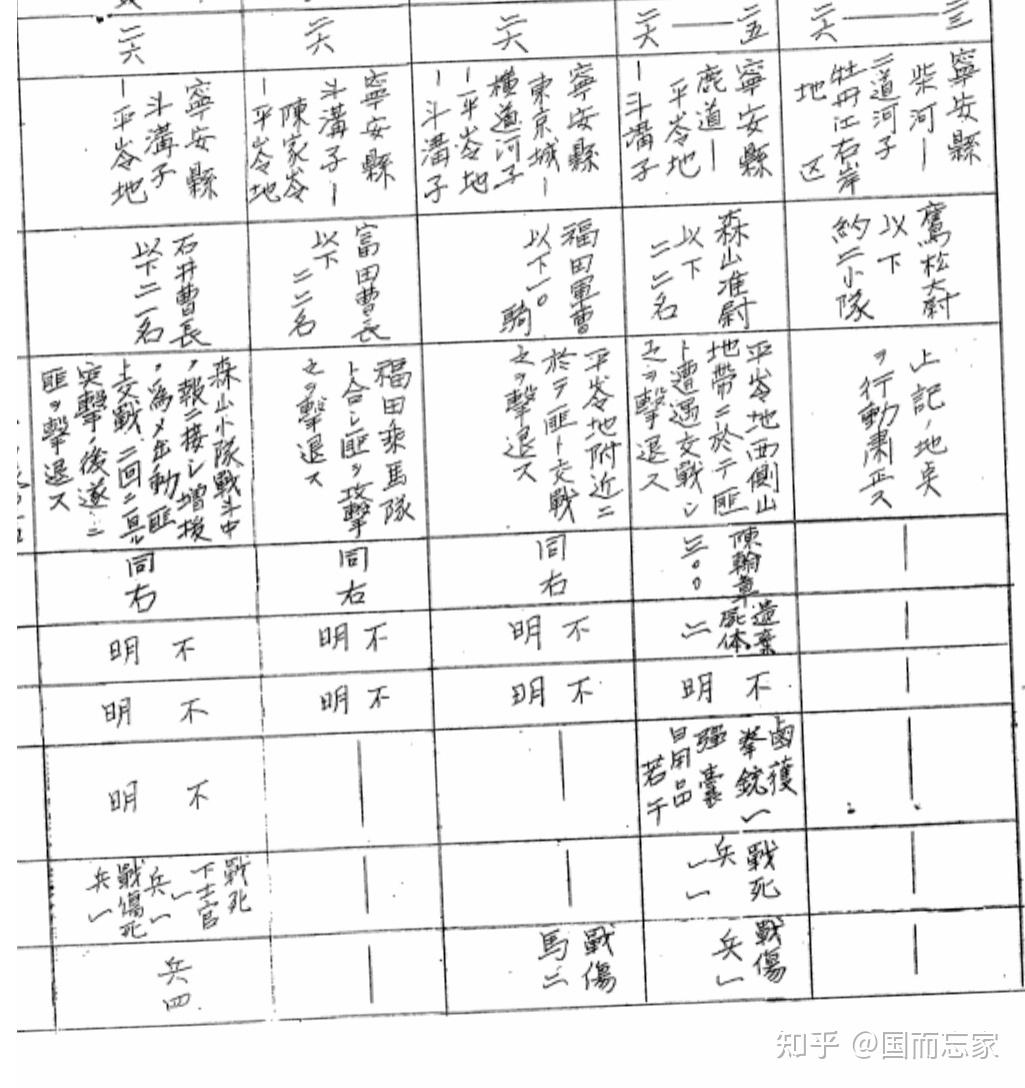 二三
二六
寧安縣
柴河ー
二道河子
牡丹江右岸
地区
鷹松大尉
以下
約二小隊
上記ノ地点
ヲ行動粛正ス
二五
二六
寧安縣
鹿道ー
平岺地
ー斗溝子
森山准尉
以下
二二名
平岺地西側山
地帶ニ於テ匪
ト遭遇交戰シ
之ヲ擊退ス
陳翰章
三〇〇
遺棄
屍体
二
不明
鹵獲
拳銃一
弾嚢
日用品
若干
戰死
兵一
戰傷
兵一
二六
寧安縣
東京城ー
橫道河子
ー平岺地
ー斗溝子
福田軍曹
以下一〇
騎
平岺地附近ニ
於テ匪ト交戰
之ヲ擊退ス
同右
不明
不明
戰傷
馬二
二六
寧安縣
斗溝子ー
陳家岺
ー平岺地
富田曹長
以下
二二名
福田乘馬隊
ト合シ匪ヲ攻擊
之ヲ擊退ス
同右
不明
不明
二六
寧安縣
斗溝子
ー平岺地
石井曹長
以下二一名
森山小隊戰斗中
ノ報ニ接シ增援
ノ為メ出動匪
ト交戰二回ニ亘ル
突擊ノ後遂ニ
匪ヲ擊退ス
同右
不明
不明
不明
戰死
下士官
一
兵一
戰傷死
兵一
兵四
知乎 @国而忘家